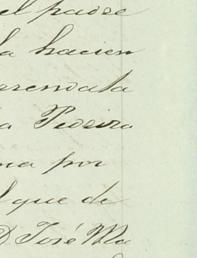 el padre
la hacien
arrendata
a Pedro
na por
l que de
D. José Ma